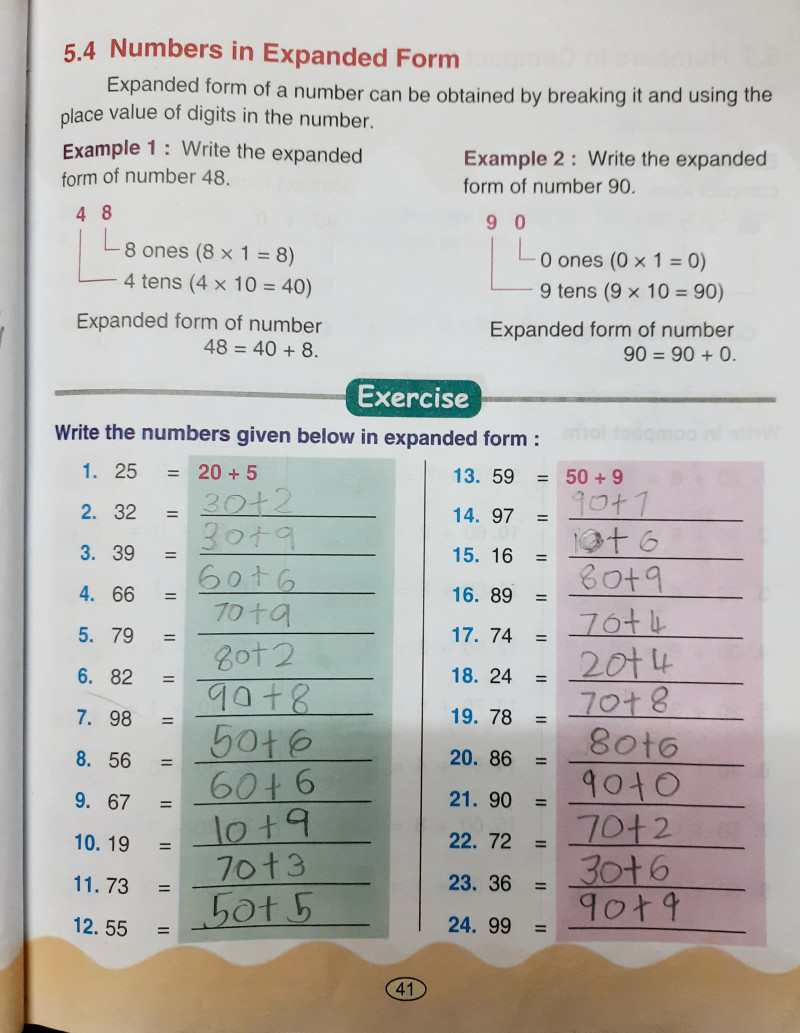 5.4 Numbers in Expanded Form
Expanded form of a number can be obtained by breaking it and using the
place value of digits in the number.
Example 1 : Write the expanded
form of number 48.
4 8
8 ones (8 × 1 = 8)
4 tens (4 × 10 = 40)
Expanded form of number
48 = 40 + 8.
Example 2 : Write the expanded
form of number 90.
9 0
0 ones (0 × 1 = 0)
9 tens (9 × 10 = 90)
Expanded form of number
90 = 90 + 0.
Exercise
Write the numbers given below in expanded form :
1. 25 = 20 + 5
2. 32 = 30+2
3. 39 = 30+9
4. 66 = 60+6
5. 79 = 70+9
6. 82 = 80+2
7. 98 = 90+8
8. 56 = 50+6
9. 67 = 60+6
10. 19 = 10+9
11. 73 = 70+3
12. 55 = 50+5
13. 59 = 50 + 9
14. 97 = 90+7
15. 16 = 10+6
16. 89 = 80+9
17. 74 = 70+4
18. 24 = 20+4
19. 78 = 70+8
20. 86 = 80+6
21. 90 = 90+0
22. 72 = 70+2
23. 36 = 30+6
24. 99 = 90+9
41